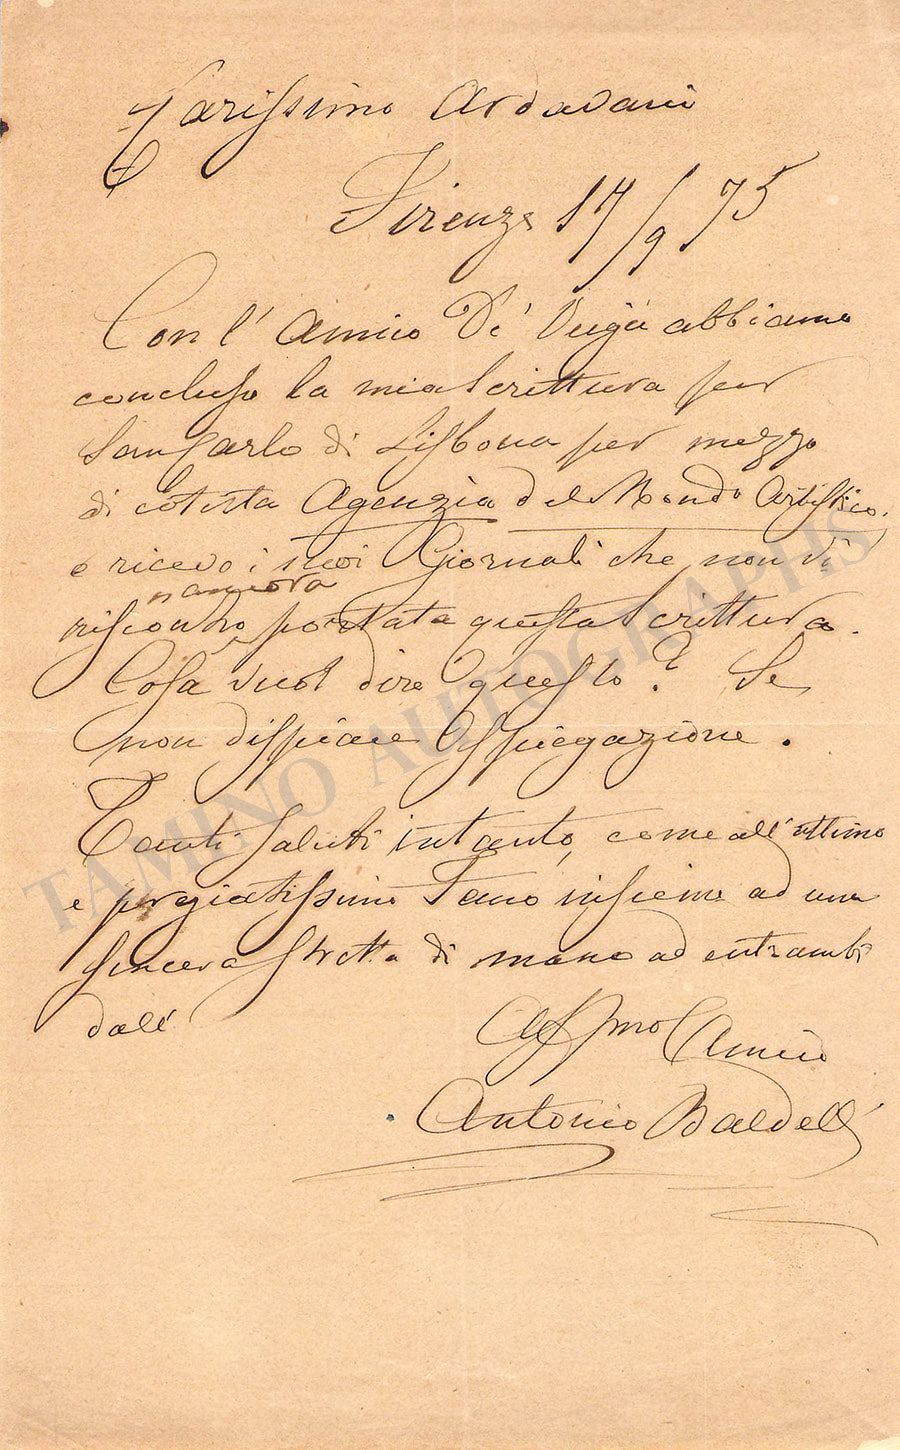 Carissimo Ardavani
Firenze 17/9 75
Con l'amico De' Veiga abbiamo
concluso la mia Scrittura per
San Carlo di Lisbona per mezzo
di cotesta Agenzia del Mondo Artistico.
e ricevo i suoi Giornali che non vi
ancora
riscontro portata questa Scrittura.
Cosa vuol dire questo? Se
non dispiace spiegazione.
Tanti saluti intanto, come all'ottimo
e pregiatissimo Fano insieme ad una
sincera stretta di mano ad entrambi
dall'
Affmo Amico
Antonio Baldelli
TAMINO AUTOGRAPHS